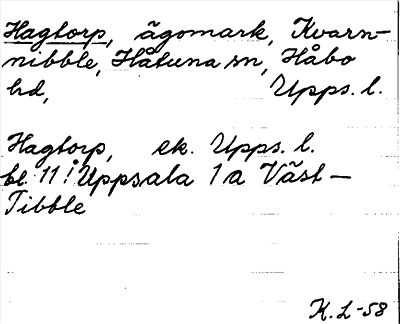 Hagtorp, ägomark, Kvarn-
nibble, Håtuna sn, Håbo
hd, Upps. l.
Hagtorp, ek. Upps. l.
bl. 11! Uppsala 1a Väst-
Tibble
K. L-58